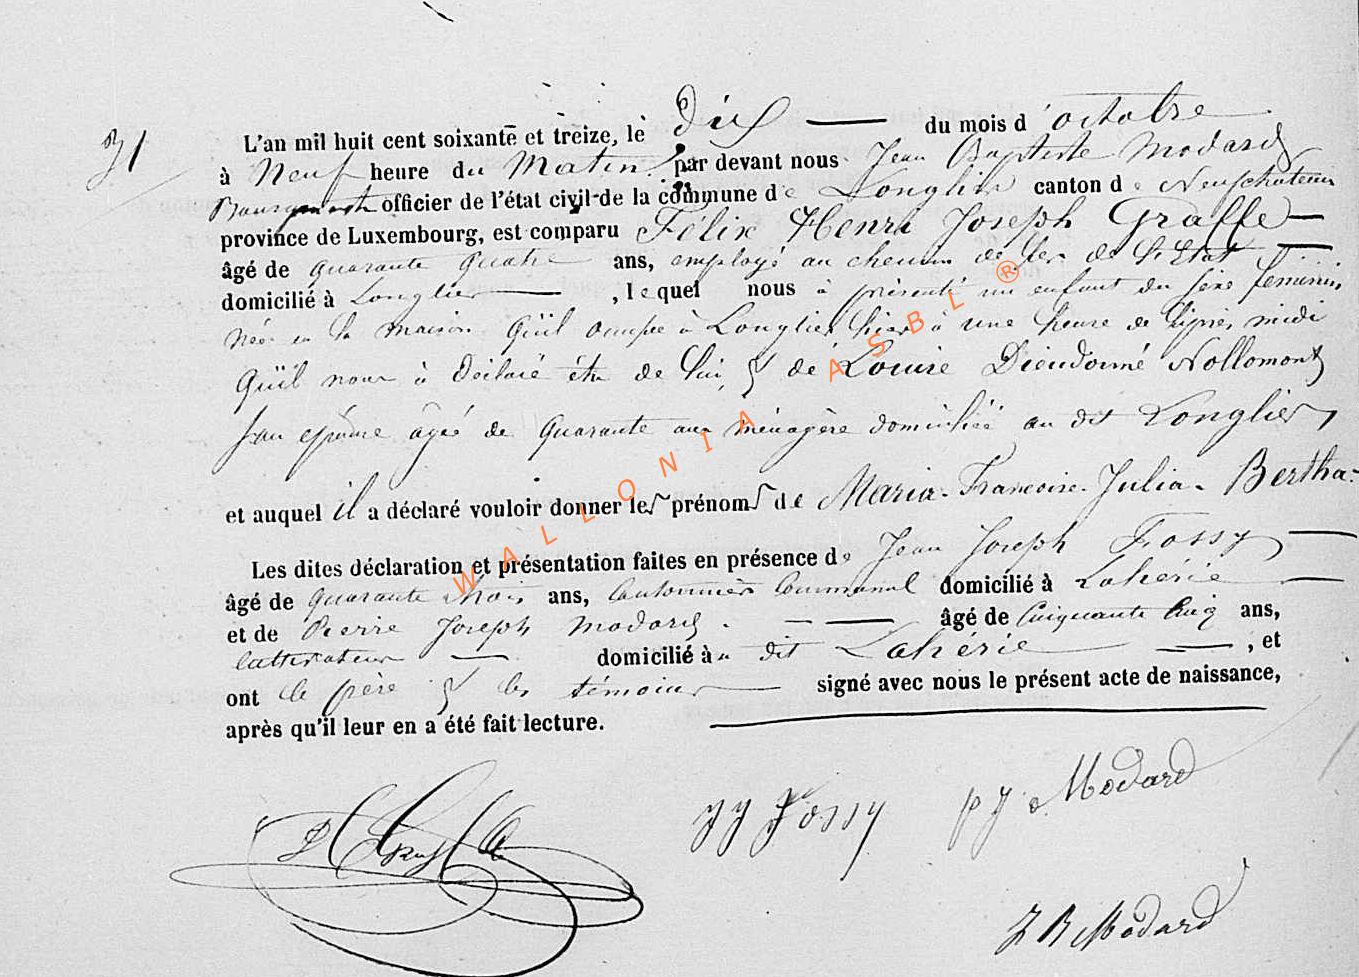 31
L'an mil huit cent soixante et treize, le dix du mois d'octobre
à Neuf heure du Matin par devant nous Jean Baptiste Modard
Bourgmestre officier de l'état civil de la commune de Longlier canton de Neufchateau
province de Luxembourg, est comparu Félix Henri Joseph Graffe
âgé de quarante quatre ans, employé au chemin de fer de l'Etat
domicilié à Longlier, lequel nous à présenté un enfant du sexe feminin
née en la maison qu'il occupe à Longlier hier à une heure de l'après midi
qu'il nous à déclaré être de lui & de Louise Dieudonné Nollomont
son épouse âgée de quarante ans ménagère domiciliée au dit Longlier
et auquel il a déclaré vouloir donner les prénoms de Maria-Francoise-Julia-Bertha-
Les dites déclaration et présentation faites en présence de Jean Joseph Fossy
âgé de quarante trois ans, Cantonnier Communal domicilié à Lahérie
et de Pierre Joseph Modard âgé de Cinquante Cinq ans,
cultivateur domicilié au dit Lahérie, et
ont le père & les témoins signé avec nous le présent acte de naissance,
après qu'il leur en a été fait lecture.
JJ Fossy
PJ Modard
J B Modard
WALLONIA ASBL ®